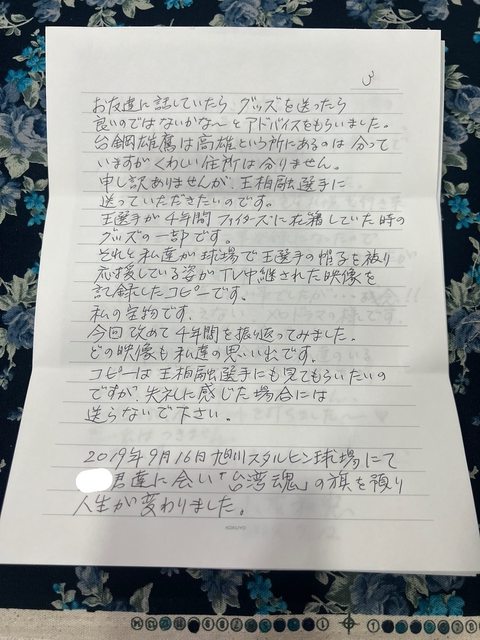 3
お友達に話していたら グッズを送ったら
良いのではないかな〜とアドバイスをもらいました。
台鋼雄鷹は高雄という所にあるのは分って
いますがくわしい住所は分りません。
申し訳ありませんが、王柏融選手に
送っていただきたいのです。
王選手が4年間ファイターズに在籍していた時の
グッズの一部です。
それと私達が球場で王選手の帽子を被り
応援している姿がTV中継された映像を
記録したコピーです。
私の宝物です。
今回改めて4年間を振り返ってみました。
どの映像も私達の思い出です。
コピーは王柏融選手にも見てもらいたいの
ですが、失礼に感じた場合には
送らないで下さい。
2019年9月16日旭川スタルヒン球場にて
君達に会い「台湾魂」の旗を預り
人生が変わりました。
KOKUYO